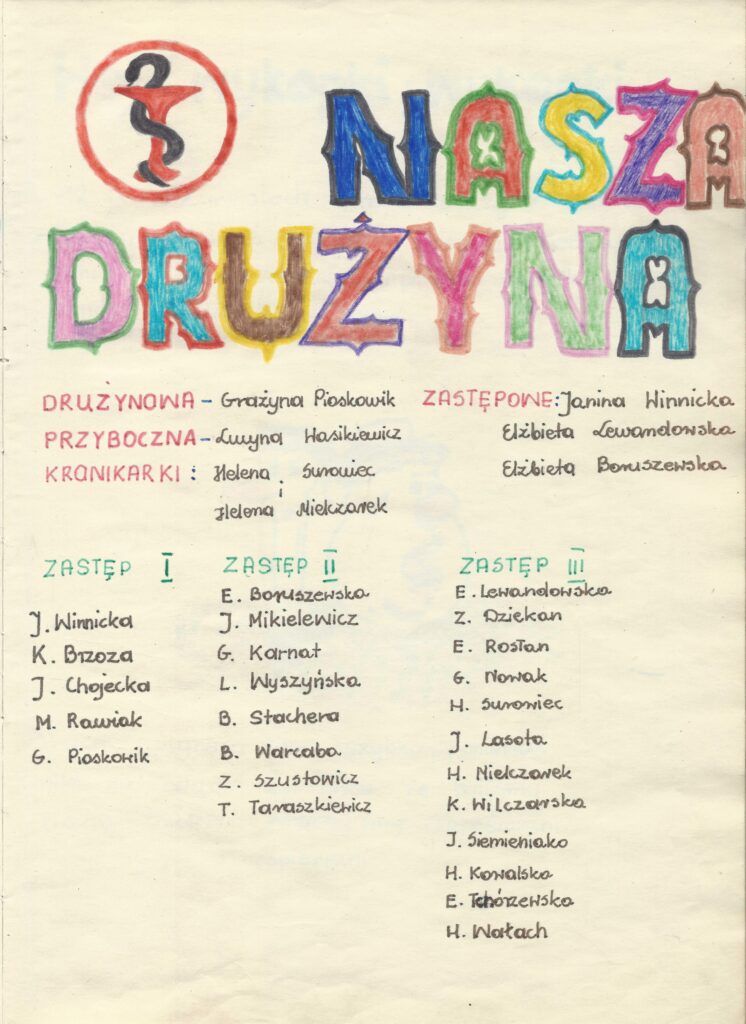 NASZA
DRUŻYNA
DRUŻYNOWA - Grażyna Pioskowik
PRZYBOCZNA - Lucyna Wasikiewicz
KRONIKARKI : Helena Surowiec
i
Helena Mielczarek
ZASTĘPOWE: Janina Winnicka
Elżbieta Lewandowska
Elżbieta Boruszewska
ZASTĘP I
J. Winnicka
K. Brzoza
J. Chojecka
M. Rawiak
G. Pioskowik
ZASTĘP II
E. Boruszewska
J. Mikielewicz
G. Karnat
L. Wyszyńska
B. Stachera
B. Warcaba
Z. Szustowicz
T. Taraszkiewicz
ZASTĘP III
E. Lewandowska
Z. Dziekan
E. Rostan
G. Nowak
H. Surowiec
J. Lasota
H. Mielczarek
K. Wilczarska
J. Siemieniako
H. Kowalska
E. Tchórzewska
H. Wałach